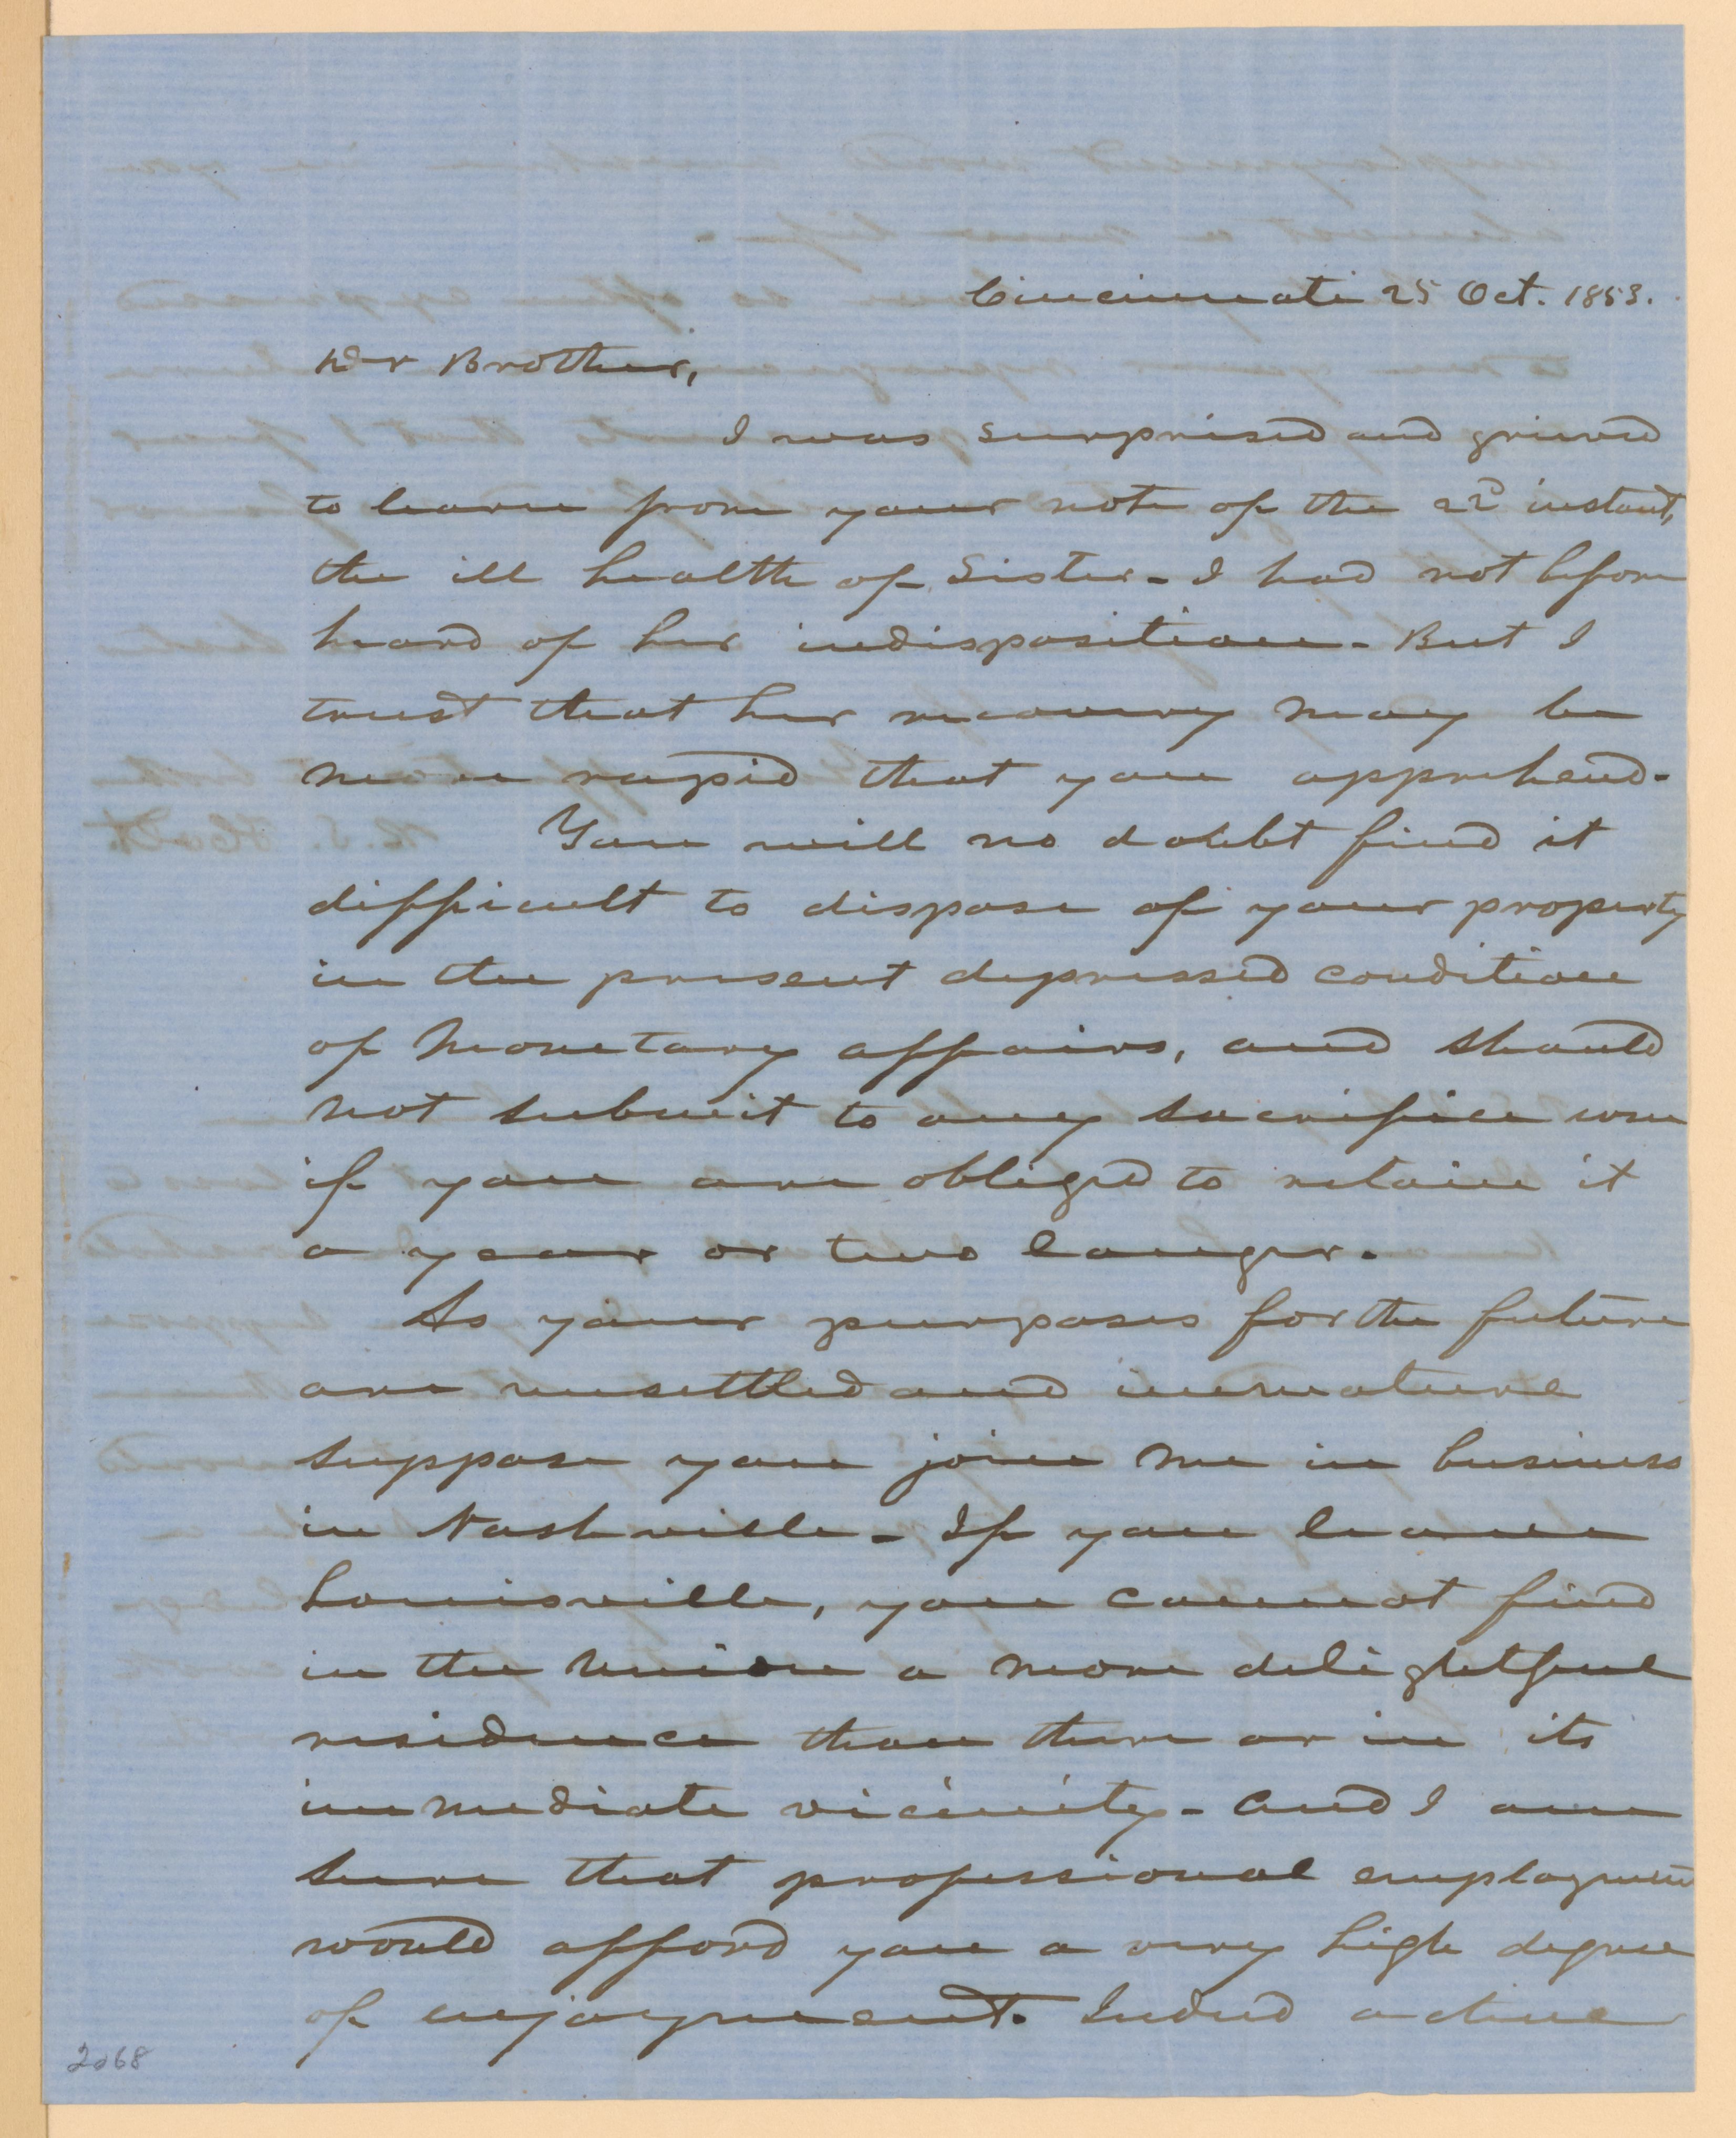 Cincinnati 25 Oct. 1853.
Dr Brother,
I was surprised and grieved
to learn from your note of the 22d instant,
the ill health of Sister - I had not before
heard of her indisposition - But I
trust that her recovery may be
more rapid that you apprehend -
You will no doubt find it
difficult to dispose of your property
in the present depressed condition
of Monetary affairs, and should
not submit to any sacrifice even
if you are obliged to retain it
a year or two longer.
As your purposes for the future
are unsettled and immature
suppose you join me in business
in Nashville - If you leave
Louisville, you cannot find
in the Union a more delightful
residence than there or in its
immediate vicinity - and I am
sure that professional employment
would afford you a very high degree
of enjoyment. Indeed active
2068